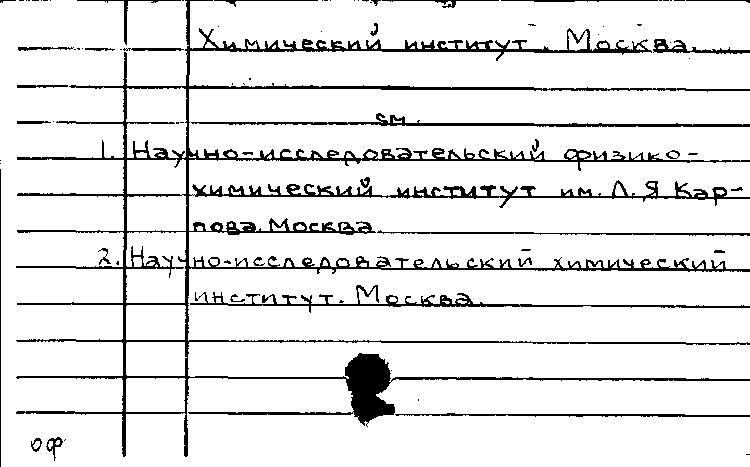 Химический институт. Москва.
см.
1. Научно-исследовательский физико-
химический институт им. Л. Я. Кар-
пова. Москва.
2. Научно-исследовательский химический
институт. Москва.
оф